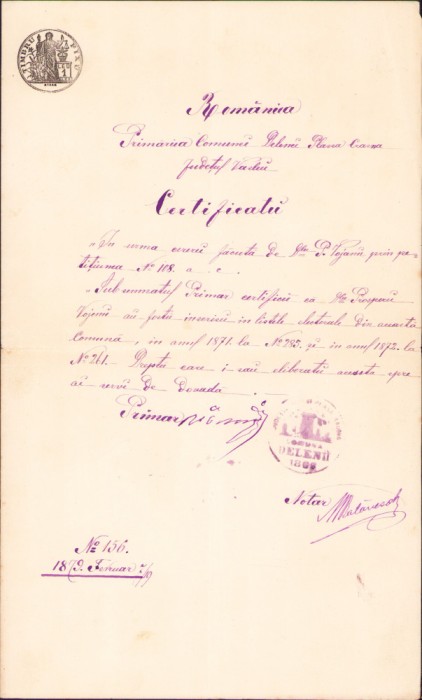 TIMBRU FIXU
România
Primăria Comunii Delenii Plasa Crasna
Judeţul Vasluiu
Certificatu
In urma cererii facuta de Dlu P. Vojanu prin pe-
tiţiunea No 108. a. c.
Sub semnatul Primar certifică că Dlu
Vojenu au fostu inscrisu in listele electorale din acésta
Comună, in anul 1871. la No 283. şi in anul 1872. la
No 261. Drepta care i sau eliberatu acésta spre
ai servi de dovadă
Primar
COMUNA
DELENII
1866
Notar
No 156.
1873. Februar